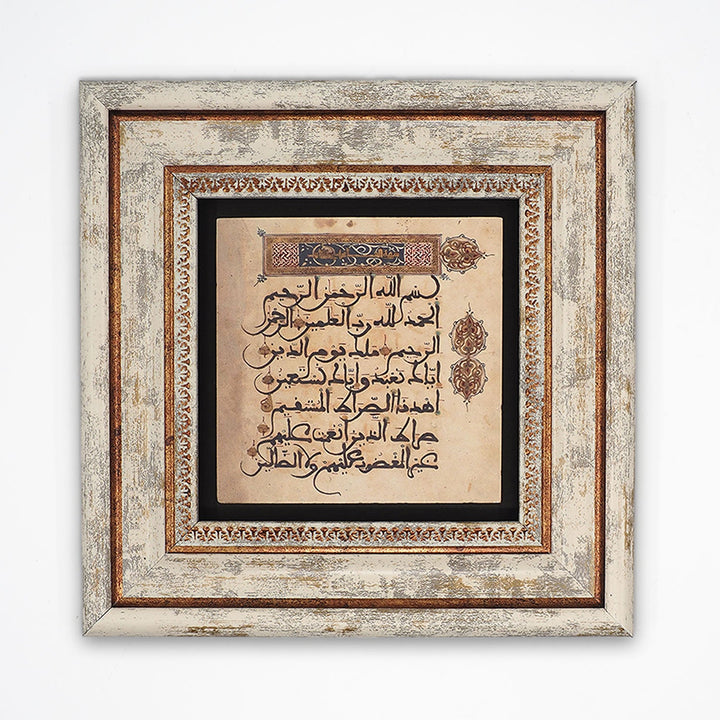 بسم الله الرحمن الرحيم
الحمد لله رب العلمين الرحمن
الرحيم ملك يوم الدين
اياك نعبد واياك نستعين
اهدنا الصراط المستقيم
صراط الذين انعمت عليهم
غير المغضوب عليهم ولا الضالين